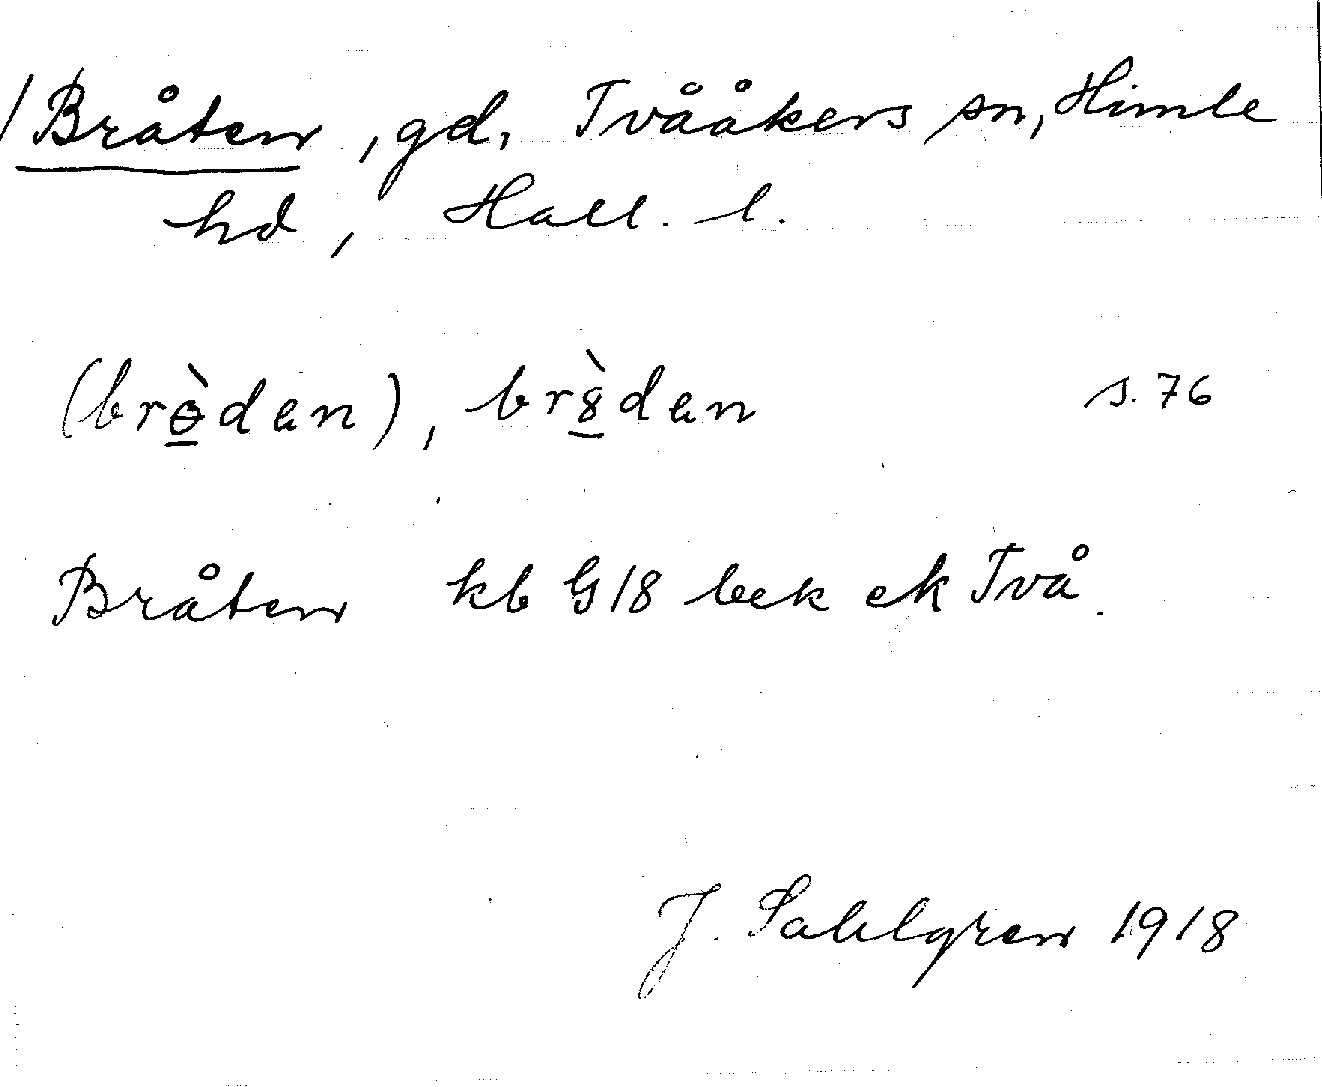 /Bråten, gd, Tvååkers sn, Himle
hd, Hall. l.
(brɵ̲̀dan), br8̲̀dan s. 76
Bråten kb G18 bek ek Två.
J. Sahlgren 1918